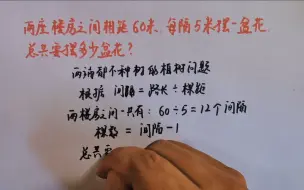 两座楼房之间相距60米,每隔5米摆一盆花,
总共要摆多少盆花?
两端都不种树的植树问题
根据 间隔=路长÷棵距
两楼房之间一共有:60÷5=12个间隔
棵数=间隔-1
总共